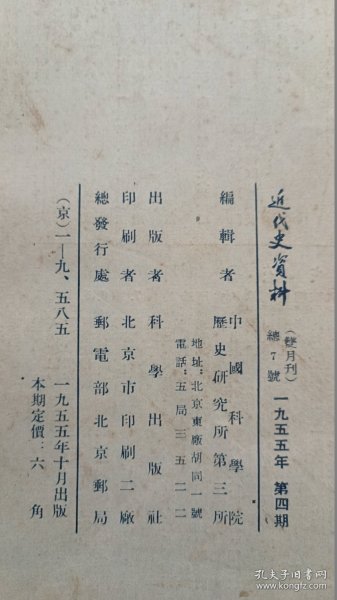 近代史資料
(雙月刊)
總7號
一九五五年 第四期
編輯者
中國科學院
歷史研究所第三所
地址:北京東廠胡同一號
電話:五局三五二二
出版者 科學出版社
印刷者 北京市印刷二廠
總發行處 郵電部北京郵局
(京)一—九、五八五
一九五五年十月出版
本期定價:六角
孔夫子旧书网
book.kongfz.com